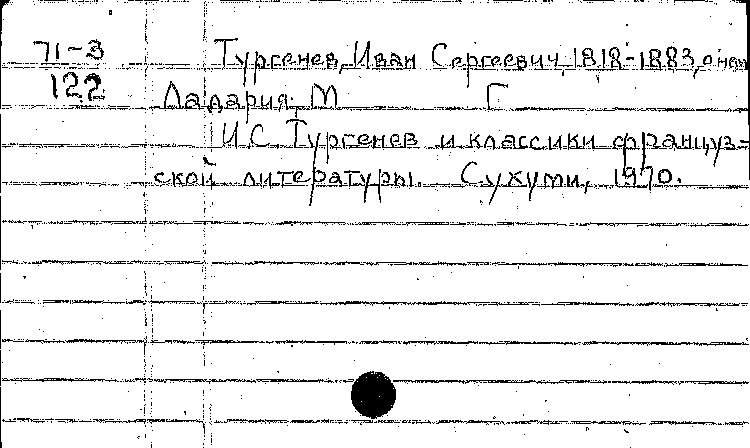 71-3 Тургенев, Иван Сергеевич, 1818-1883, о нем
122 Ладария, М Г
И.С. Тургенев и классики француз-
ской литературы. Сухуми, 1970.